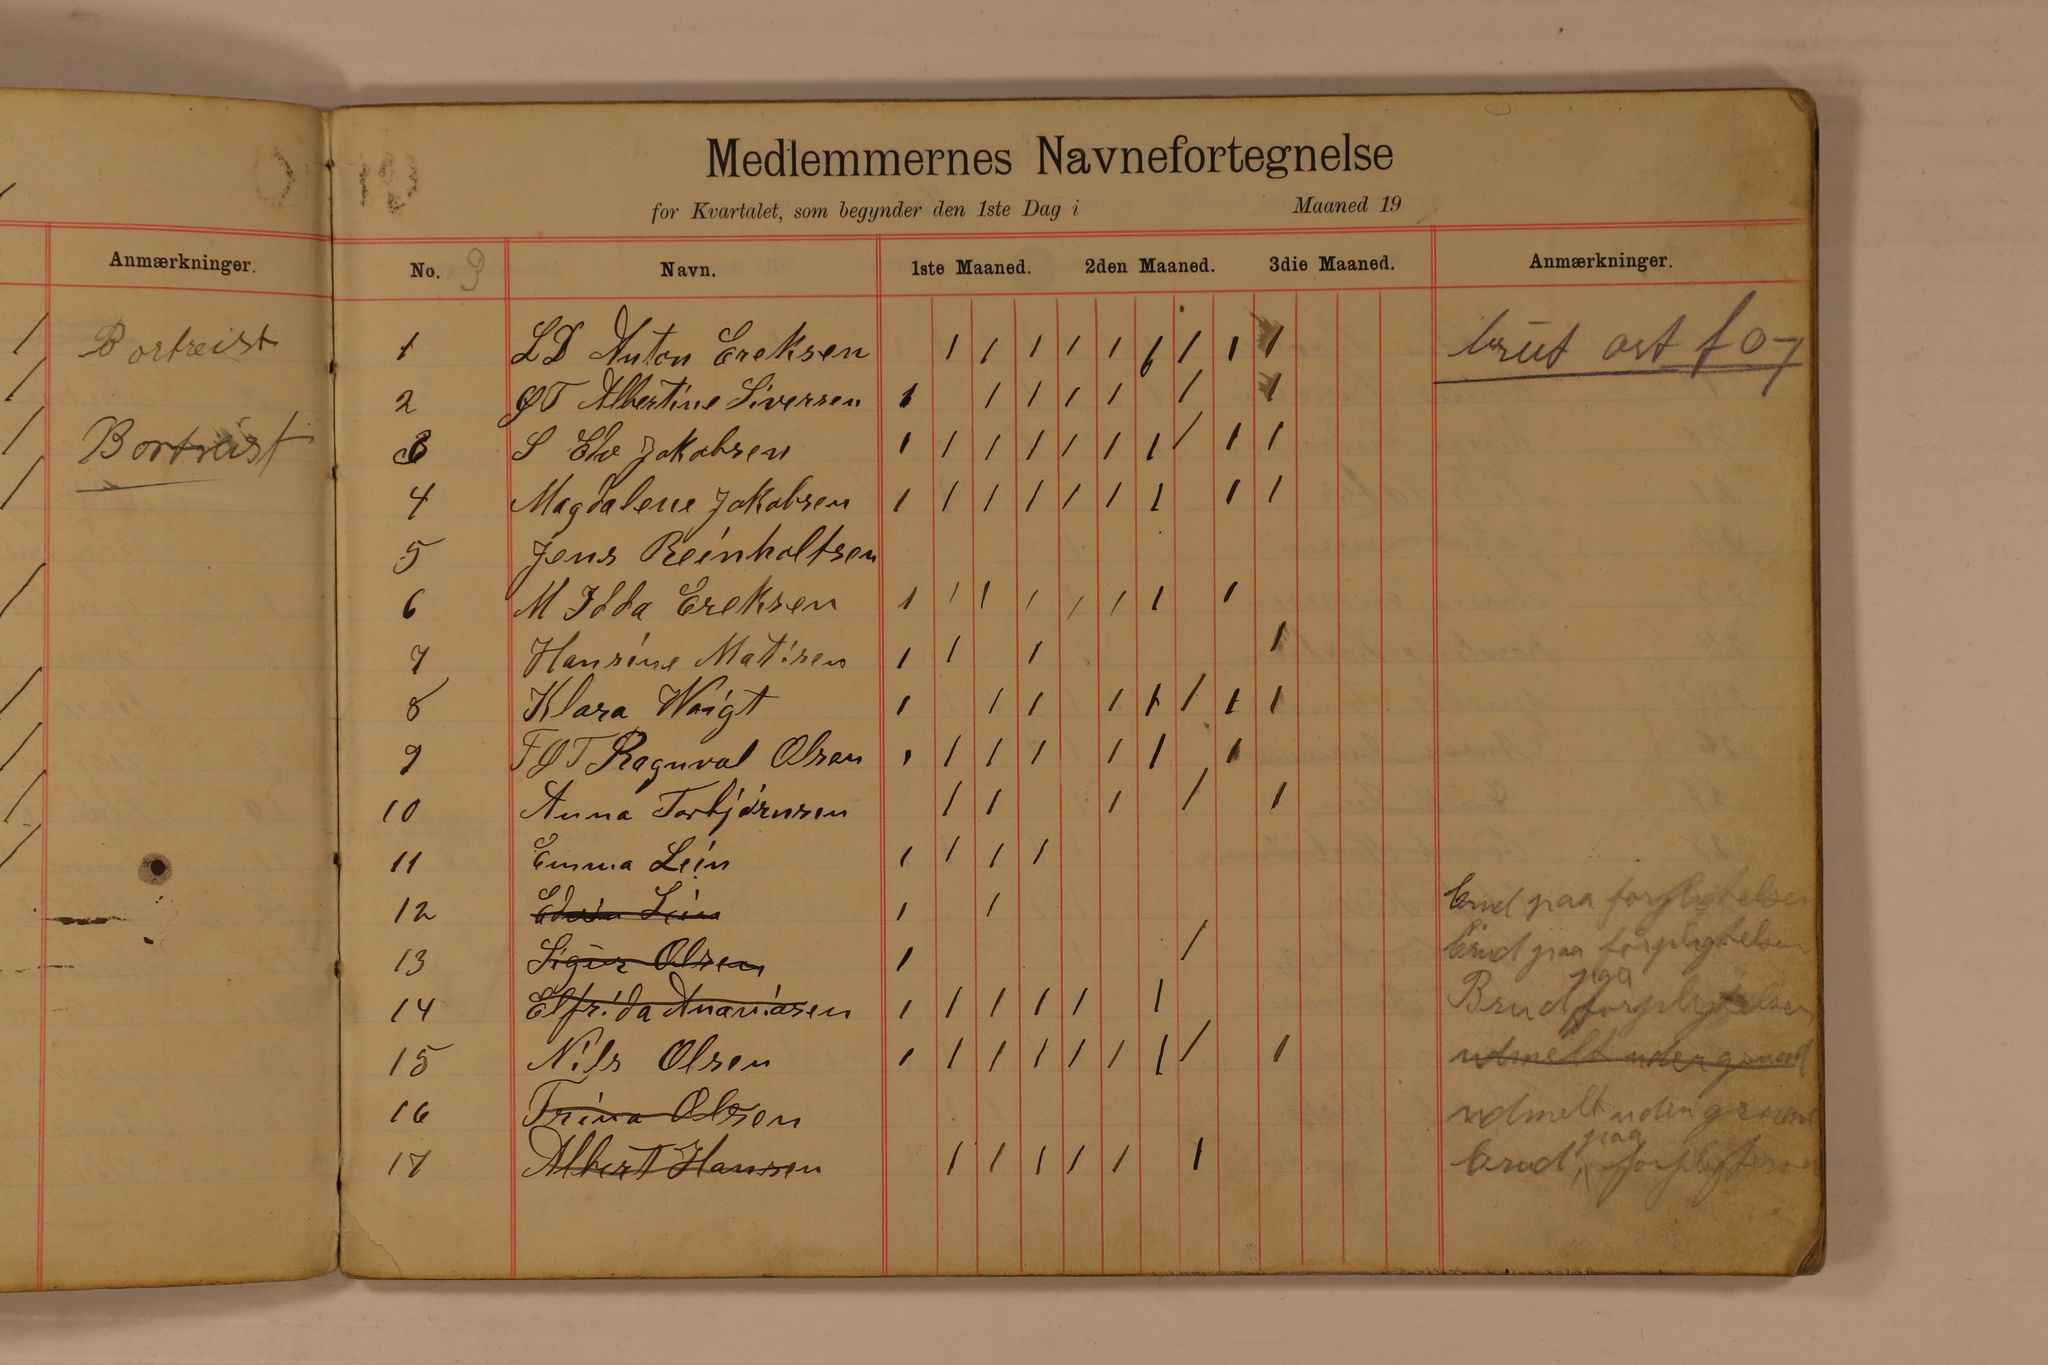 Anmærkninger.
Bortreist
Bortreist
Medlemmernes Navnefortegnelse
for Kvartalet, som begynder den 1ste Dag i Maaned 19
No. 9 Navn. 1ste Maaned. 2den Maaned. 3die Maaned. Anmærkninger.
1 LD Anton Ereksen / / / / / / / / / brut art
2 ØT Albertine Siversen / / / / / / / /
3 S Elv Jakobsen / / / / / / / / / /
4 Magdalene Jakobsen / / / / / / / / /
5 Jens Reinholtsen
6 M Idda Ereksen / / / / / / / /
7 Hansine Matisen / / / /
8 Klara Woigt / / / / / / / /
9 FØT Ragnval Olsen / / / / / / /
10 Anna Torbjørnsen / / / / /
11 Emma Lein / / / /
12 Edvin Lein / / Brud paa forplygtelsen
13 Sigur Olsen / / Brud paa forplygtelsen
14 Elfrida Ananiasen / / / / / / Brud paa forplygtelsen
15 Nils Olsen / / / / / / / / / udmelt uden grund
16 Trina Olsen udmelt uden grund
17 Albert Hansen / / / / / / Brud paa